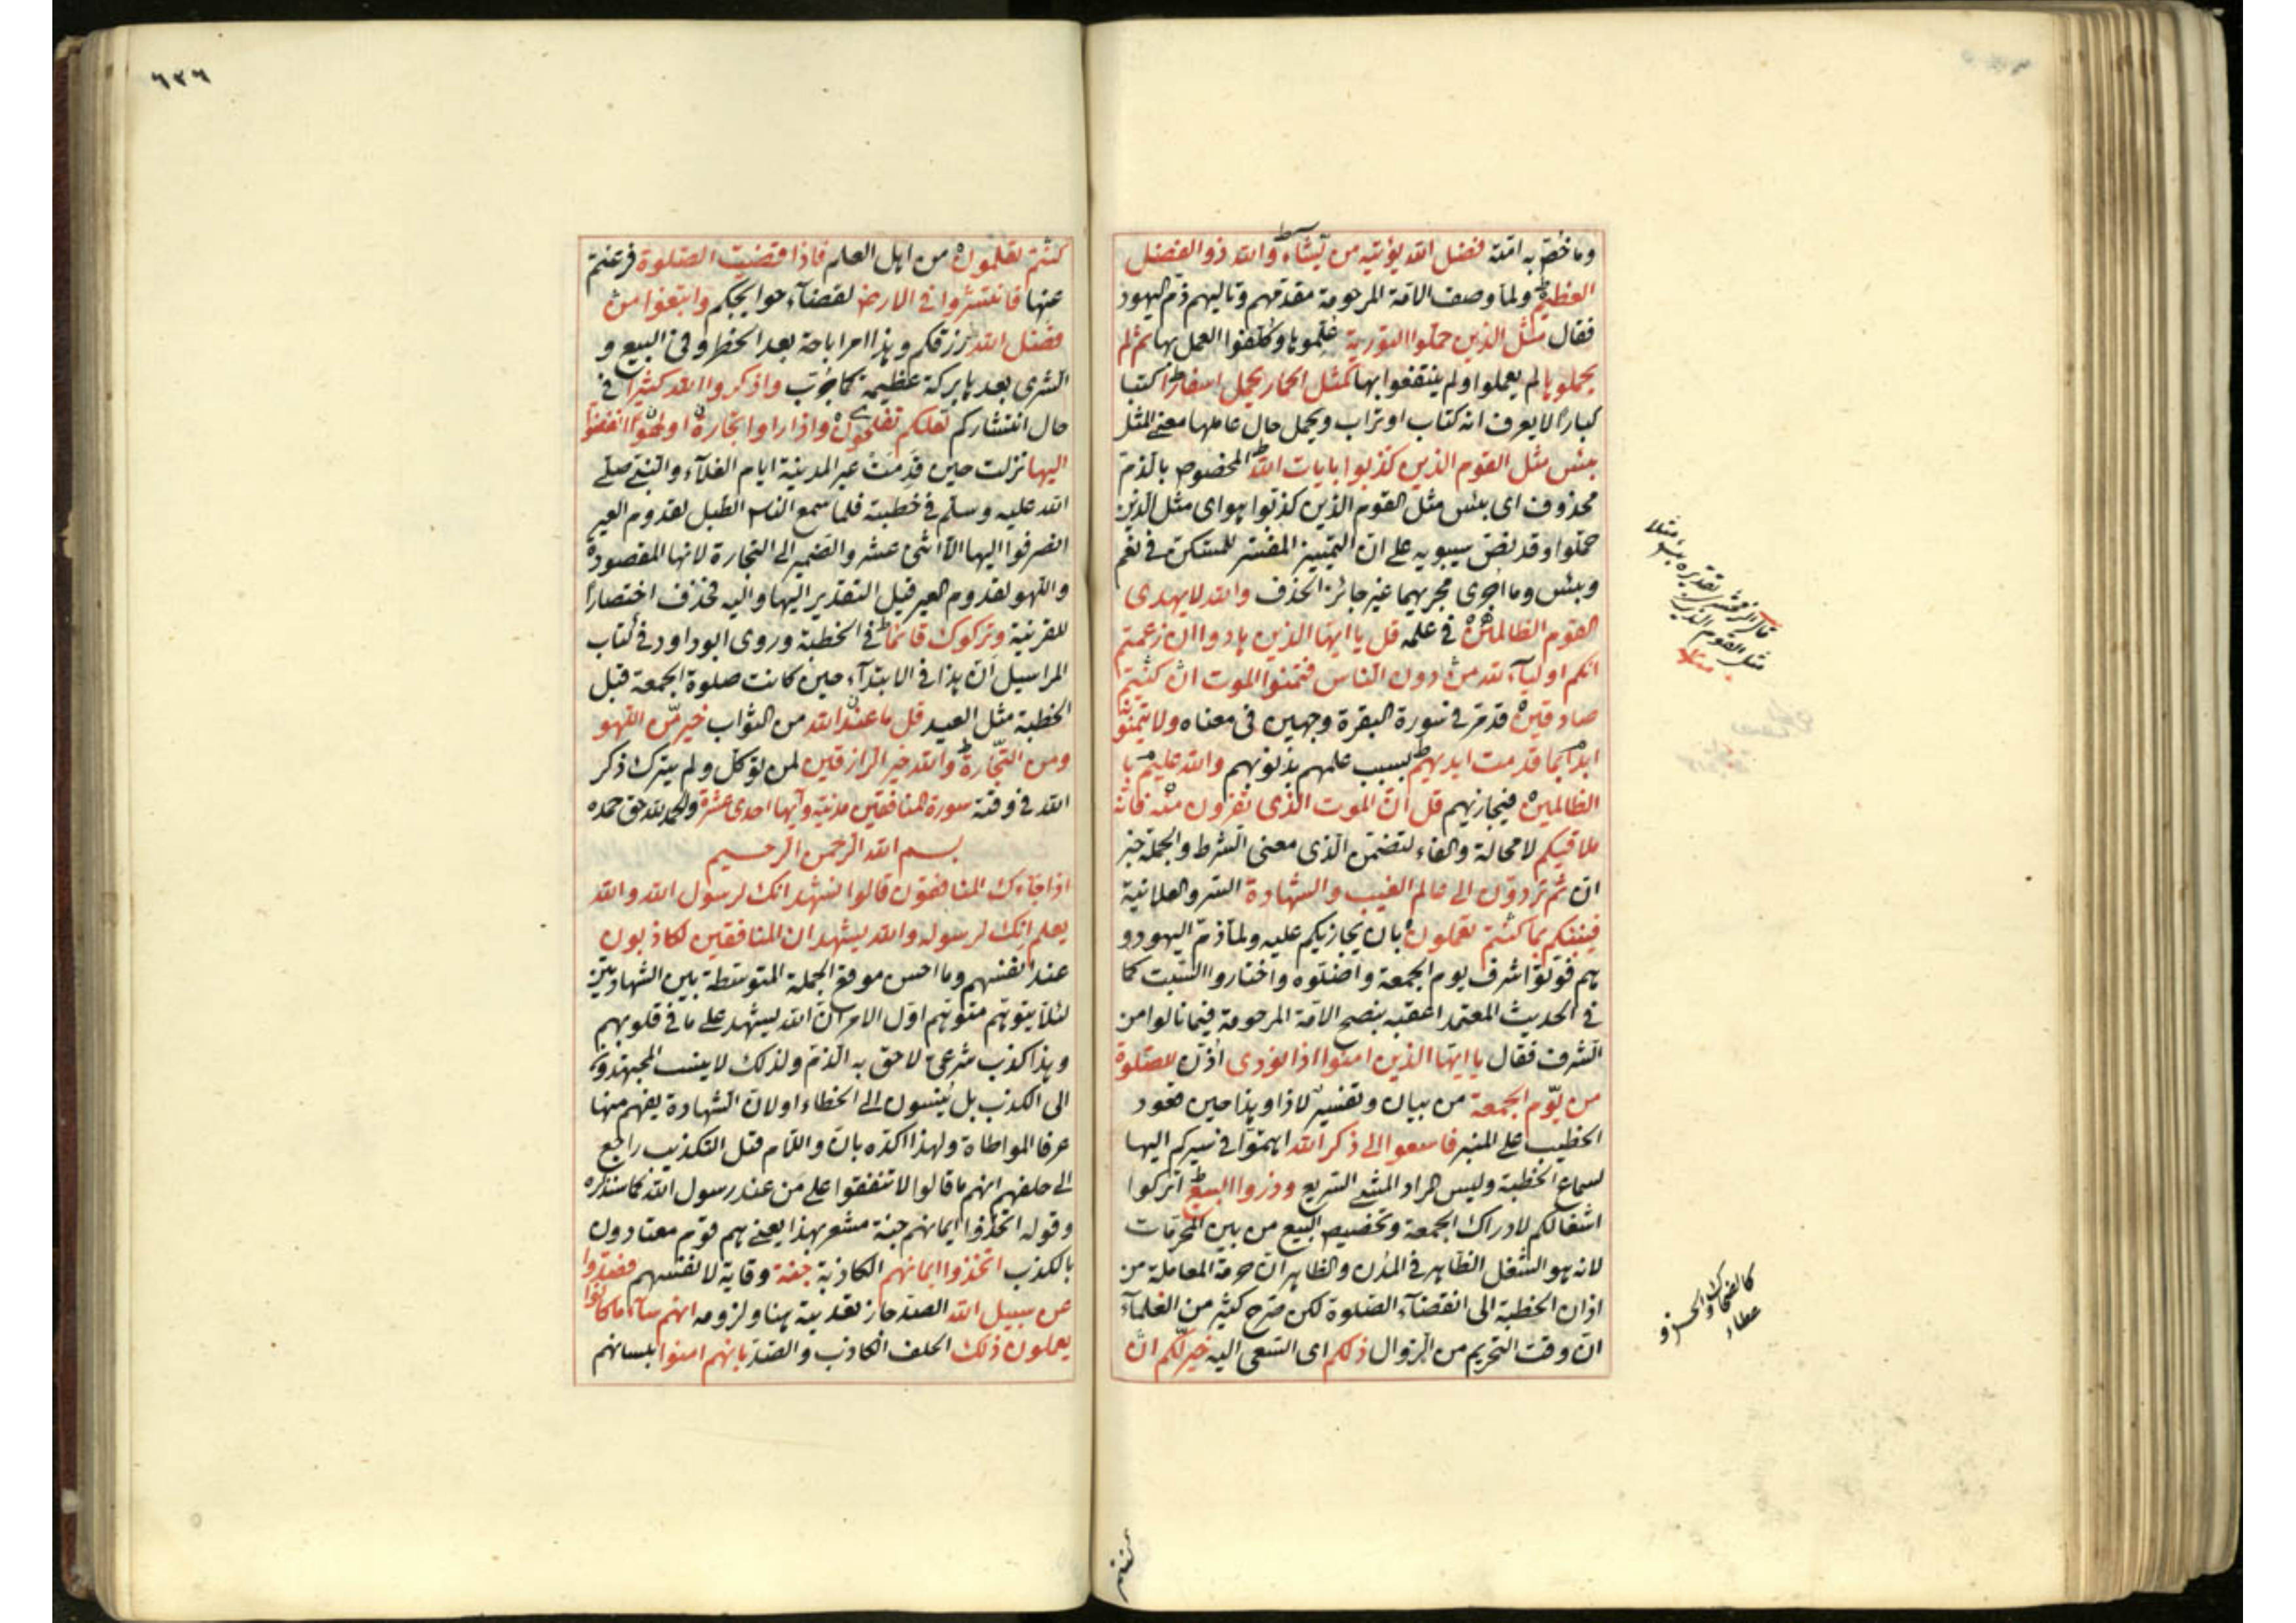 وما خص به امته فضل الله يؤتيه من يشاء والله ذو الفضل
العظيم ولما وصف الامة المرحومة مقدمهم وتاليهم ذم اليهود
فقال مثل الذين حملوا التورية علموها وكلفوا العمل بها ثم لم
يحملوها لم يعملوا ولم ينتفعوا بها كمثل الحمار يحمل اسفارا كتبا
كبارا لا يعرف انه كتاب او تراب ويحمل حال عاملها معنى المثل
بئس مثل القوم الذين كذبوا بايات الله المخصوص بالذم
محذوف اى بئس مثل القوم الذين كذبوا هو اى مثل الذين
حملوا وقد نص سيبويه على ان التمييز المفسر للمستكن فى نعم
وبئس وما اجرى مجريهما غير جائز الحذف والله لا يهدى
القوم الظالمين فى علمه قل يا ايها الذين هادوا ان زعمتم
انكم اولياء لله من دون الناس فتمنوا الموت ان كنتم
صادقين قد مر فى سورة البقرة وجهين فى معناه ولا يتمنونه
ابدا بما قدمت ايديهم بسبب علمهم بذنوبهم والله عليم با
الظالمين فيجازيهم قل ان الموت الذى تفرون منه فانه
ملاقيكم لا محالة والفاء لتضمن الذى معنى الشرط والجملة خبر
ان ثم تردون الى عالم الغيب والشهادة السر والعلانية
فينبئكم بما كنتم تعملون بان يجازيكم عليه ولما ذم اليهود و
هم فوتوا شرف يوم الجمعة واضلوه واختاروا السبت كما
فى الحديث المعتمد اعقبه بنصح الامة المرحومة فيما نالوا من
الشرف فقال يا ايها الذين امنوا اذا نودى اذن للصلوة
من يوم الجمعة من بيان وتفسير لاذا وهذا حين قعود
الخطيب على المنبر فاسعوا الى ذكر الله اهتموا فى سيركم اليها
لسماع الخطبة وليس المراد المشى السريع وذروا البيع اتركوا
اشغالكم لادراك الجمعة وتخصيص البيع من بين المحرمات
لانه هو الشغل الظاهر فى المدن والظاهر ان حرمة المعاملة من
اذان الخطبة الى انقضاء الصلوة لكن صرح كثير من العلماء
ان وقت التحريم من الزوال ذلكم اى السعى اليه خير لكم ان
قال الزمخشرى تقديره بئس مثلا
مثل القوم الذين
كالضحاك والحسن و
عطاء
كنتم
٦٢٦
كنتم تعلمون من اهل العلم فاذا قضيت الصلوة فرغتم
عنها فانتشروا فى الارض لقضاء حوايجكم وابتغوا من
فضل الله رزقكم وهذا امر اباحة بعد الحظر وفى البيع و
الشرى بعدها بركة عظيمة كما جرب واذكروا الله كثيرا فى
حال انتشاركم لعلكم تفلحون واذا راوا تجارة او لهوا انفضوا
اليها نزلت حين قدمت عير المدينة ايام الغلاء والنبى صلى
الله عليه وسلم فى خطبته فلما سمع الناس الطبل لقدوم العير
انصرفوا اليها الا اثنى عشر والضمير الى التجارة لانها المقصودة
واللهو لقدوم العير قيل التقدير اليها واليه فحذف اختصارا
للقرينة وتركوك قائما فى الخطبة وروى ابو داود فى كتاب
المراسيل ان هذا فى الابتداء حين كانت صلوة الجمعة قبل
الخطبة مثل العيد قل ما عند الله من الثواب خير من اللهو
ومن التجارة والله خير الرازقين لمن توكل ولم يترك ذكر
الله فى وقته سورة المنافقين مدنية وآيها احدى عشرة والحمد لله حق حمده
بسم الله الرحمن الرحيم
اذا جاءك المنافقون قالوا نشهد انك لرسول الله والله
يعلم انك لرسوله والله يشهد ان المنافقين لكاذبون
عند انفسهم وما احسن موقع الجملة المتوسطة بين الشهادتين
لئلا يتوهم متوهم اول الامر ان الله يشهد على ما فى قلوبهم
وهذا كذب شرعى لاحق به الذم ولذلك لا ينسب المجتهدون
الى الكذب بل ينسبون الى الخطاء او لان الشهادة يفهم منها
عرفا المواطاة ولهذا اكده بان واللام قيل التكذيب راجع
الى حلفهم انهم ما قالوا لا تنفقوا على من عند رسول الله كما سنذكره
وقوله اتخذوا ايمانهم جنة مشعر بهذا يعنى هم قوم معتادون
بالكذب اتخذوا ايمانهم الكاذبة جنة وقاية لانفسهم فصدوا
عن سبيل الله الصد جاز تعديته هنا ولزومه انهم ساء ما كانوا
يعملون ذلك الحلف الكاذب والصد بانهم امنوا بلسانهم